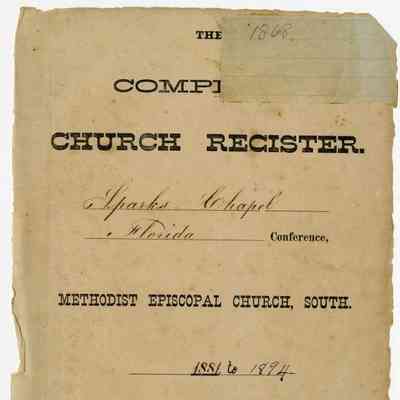 THE
1868
COMP
CHURCH REGISTER.
Sparks Chapel
Florida Conference,
METHODIST EPISCOPAL CHURCH, SOUTH.
1881 to 1894